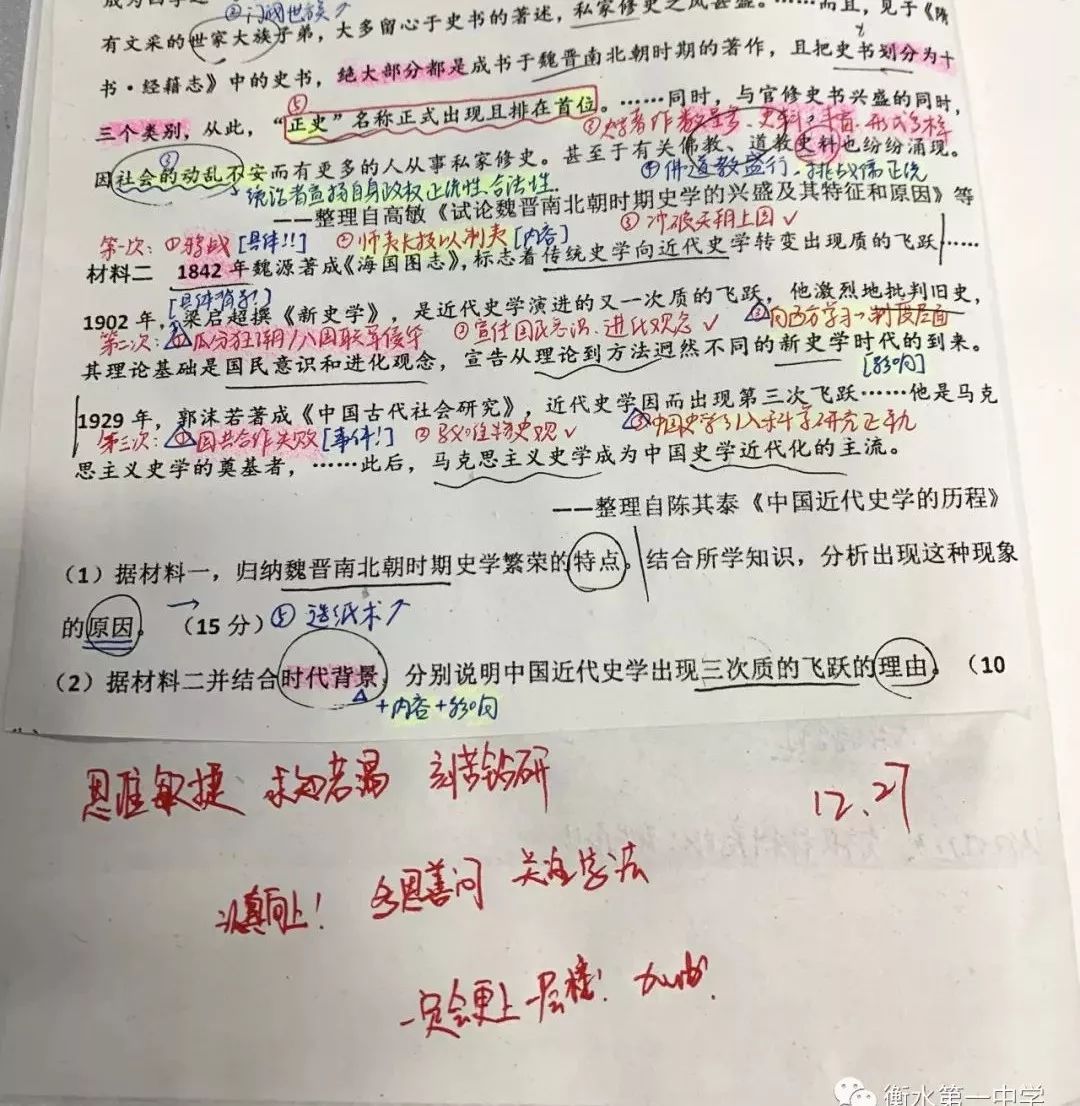 ②门阀世族↑
有文采的世家大族子弟，大多留心于史书的著述，私家修史之风甚盛。……而且，见于《隋
书·经籍志》中的史书，绝大部分都是成书于魏晋南北朝时期的著作，且把史书划分为十
三个类别，从此，“正史”名称正式出现且排在首位。……同时，与官修史书兴盛的同时，
因社会的动乱不安而有更多的人从事私家修史。甚至于有关佛教、道教史科也纷纷涌现。
统治者宣扬自身政权正统性、合法性.
④佛、道教盛行，挑战儒正统
——整理自高敏《试论魏晋南北朝时期史学的兴盛及其特征和原因》等
第一次：①鸦战[具体!!] ②师夷长技以制夷[内容] ③冲破天朝上国✓
材料二 1842 年魏源著成《海国图志》，标志着传统史学向近代史学转变出现质的飞跃……
[具体背景!]
1902 年，梁启超撰《新史学》，是近代史学演进的又一次质的飞跃，他激烈地批判旧史，
第二次：①瓜分狂潮/八国联军侵华 ②宣传国民意识、进化观念✓ ③向西方学习→制度层面
其理论基础是国民意识和进化观念，宣告从理论到方法迥然不同的新史学时代的到来。
[影响]
1929 年，郭沫若著成《中国古代社会研究》，近代史学因而出现第三次飞跃……他是马克
第三次：①国共合作失败[事件!] ②唯物史观✓ ③中国史学引入科学研究正轨
思主义史学的奠基者，……此后，马克思主义史学成为中国史学近代化的主流。
——整理自陈其泰《中国近代史学的历程》
（1）据材料一，归纳魏晋南北朝时期史学繁荣的特点。结合所学知识，分析出现这种现象
的原因。（15 分）⑤造纸术↑
（2）据材料二并结合时代背景，分别说明中国近代史学出现三次质的飞跃的理由。（10
+内容+影响
思维敏捷 求知若渴 刻苦钻研 12.27
认真向上！ 多思善问 关注学法
一定会更上一层楼！加油.
衡水第一中学